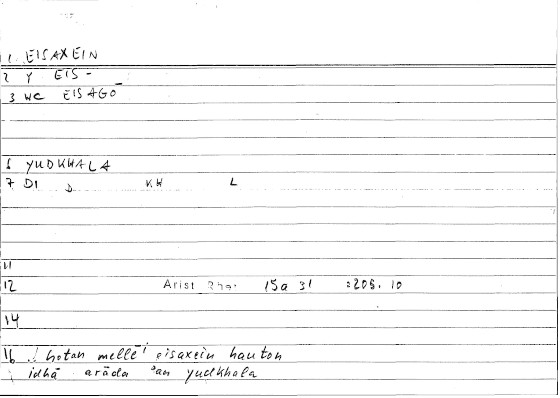 1 EISAXEIN
2 Y EIS-
3 WC EISAGŌ
6 YUDKHALA
7 DI D KH L
11
12 Arist Rhet 15a 31 :208.10
14
16 hotan mellēi eisaxein hauton
idhā arāda ʾan yudkhala